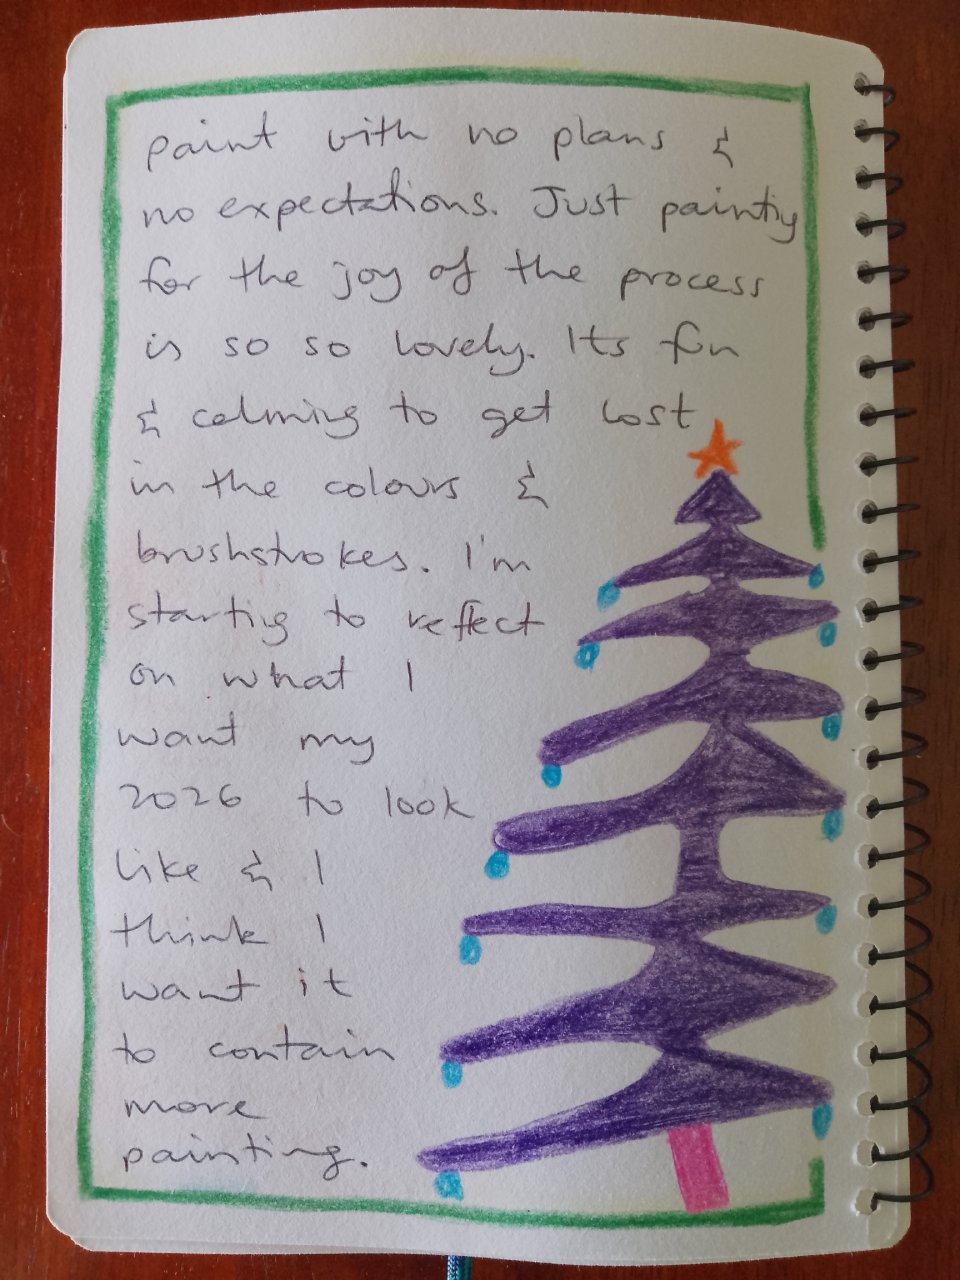 paint with no plans &
no expectations. Just painting
for the joy of the process
is so so lovely. Its fun
& calming to get lost
in the colours &
brushstrokes. I'm
starting to reflect
on what I
want my
2026 to look
like & I
think I
want it
to contain
more
painting.